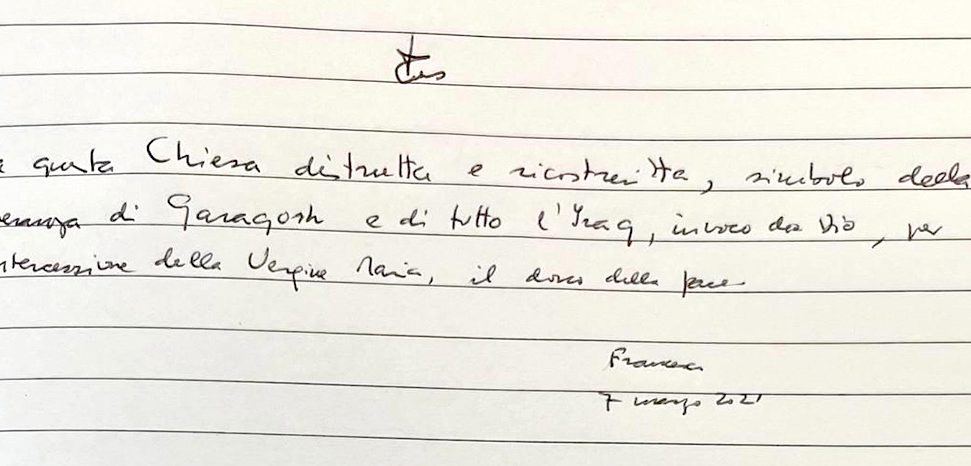 questa Chiesa distrutta e ricostruitta, simbolo della
di Qaragosh e di tutto l'Iraq, invoco da Dio, per
ntercessione della Vergine Maria, il dono della pace
Francesco
7 marzo 2021